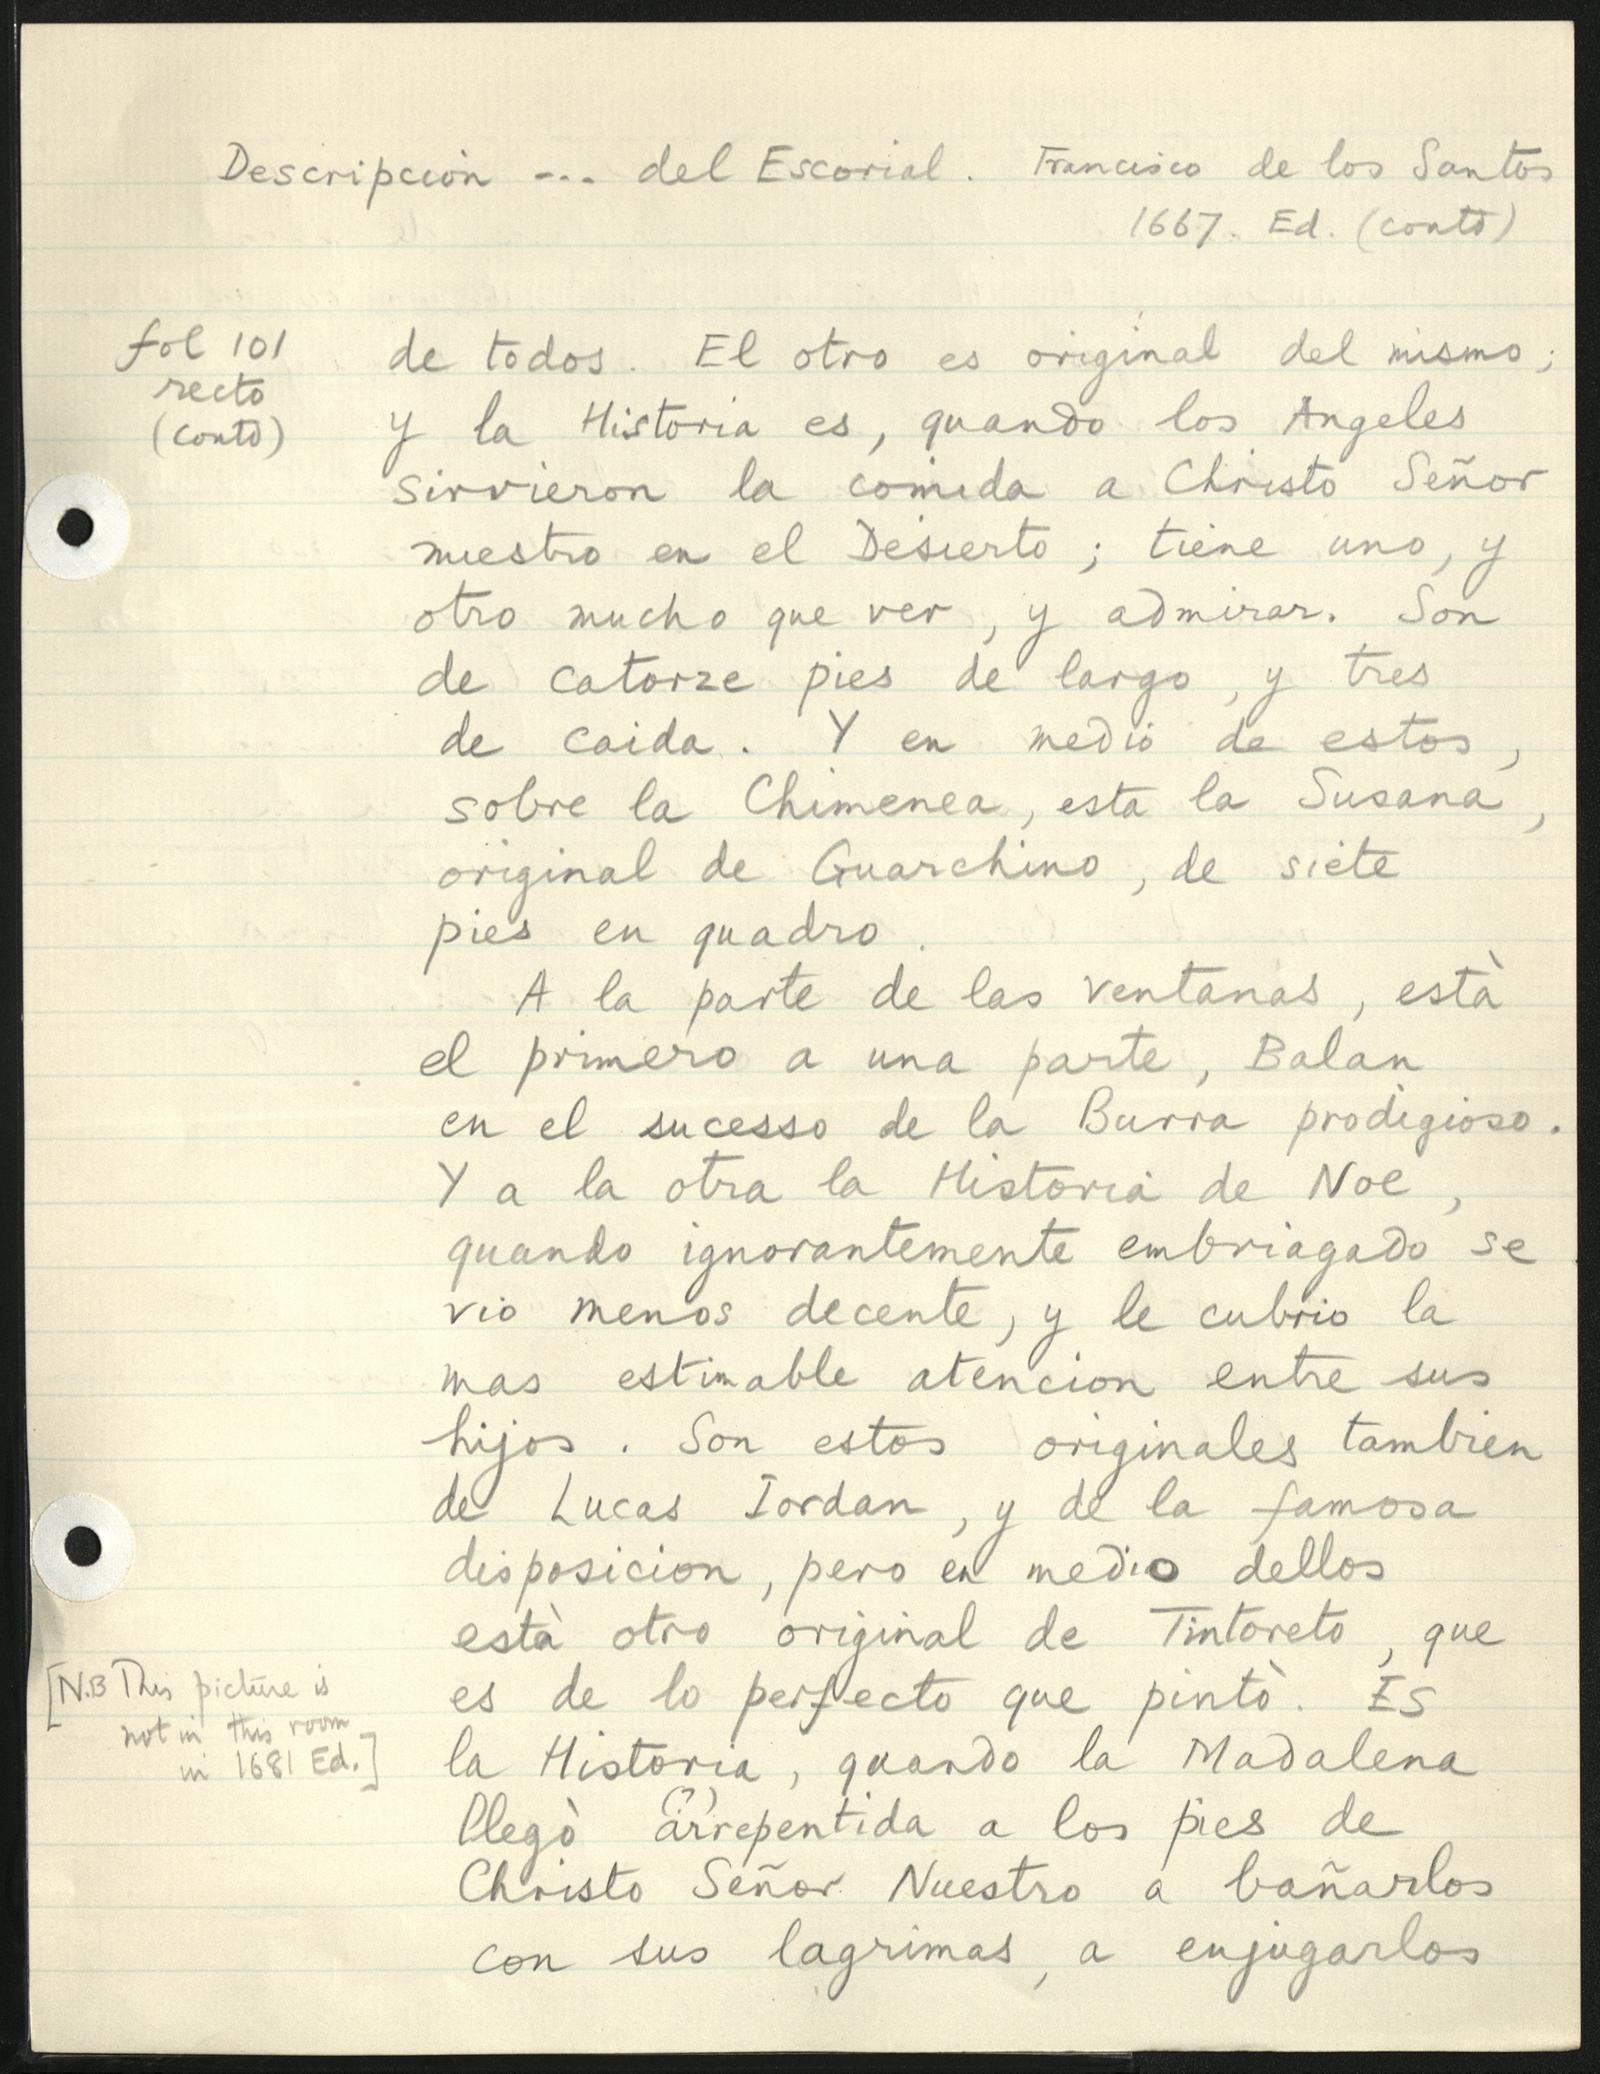 Descripcion --- del Escorial. Francisco de los Santos
1667. Ed. (contd)
fol 101
recto
(contd)
de todos. El otro es original del mismo;
y la Historia es, quando los Angeles
sirvieron la comida a Christo Señor
nuestro en el Desierto; tiene uno, y
otro mucho que ver, y admirar. Son
de catorze pies de largo, y tres
de caida. Y en medio de estos,
sobre la Chimenea, esta la Susana,
original de Guarchino, de siete
pies en quadro.
A la parte de las ventanas, està
el primero a una parte, Balan
en el sucesso de la Burra prodigioso.
Y a la otra la Historia de Noe,
quando ignorantemente embriagado se
vio menos decente, y le cubrio la
mas estimable atencion entre sus
hijos. Son estos originales tambien
de Lucas Iordan, y de la famosa
disposicion, pero en medio dellos
està otro original de Tintoreto, que
es de lo perfecto que pintò. Es
la Historia, quando la Madalena
llegò arrepentida (?) a los pies de
Christo Señor Nuestro a bañarlos
con sus lagrimas, a enjugarlos
[N.B This picture is
not in this room
in 1681 Ed.]